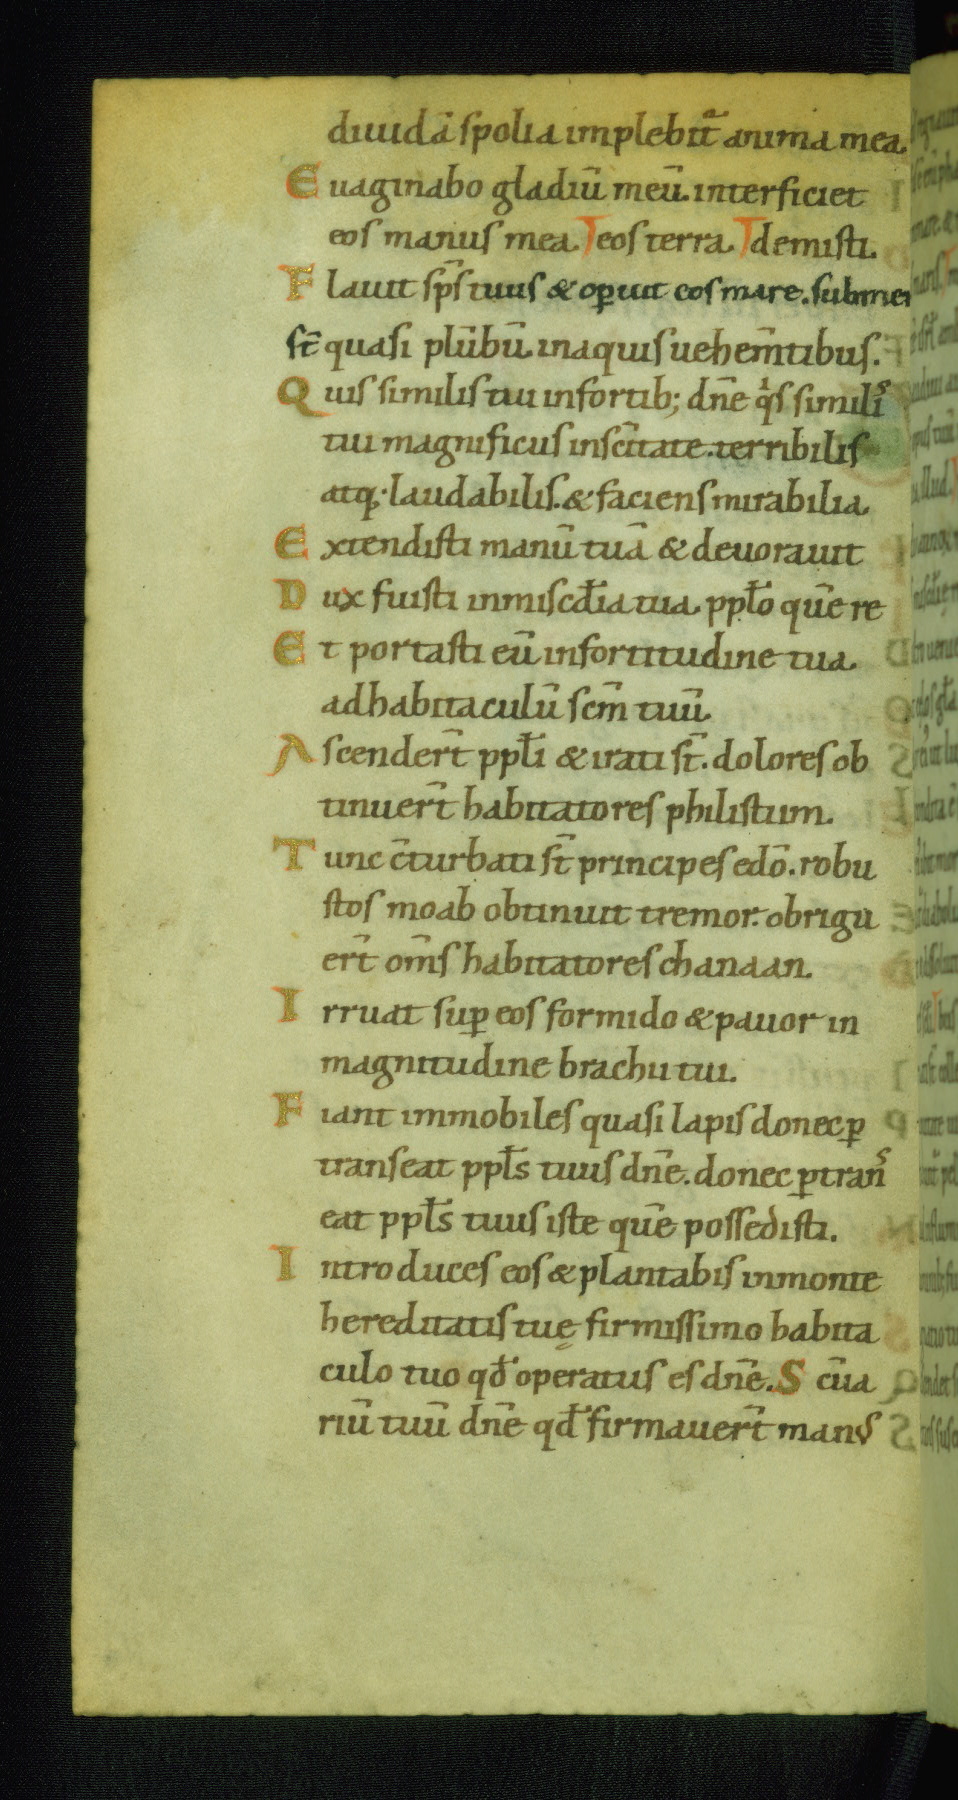 diuidā spolia implebit̃ anima mea.
Euaginabo gladiū meū. interficiet
eos manus mea. eos terra. demisti.
Flauit sp̄s tuus & op̲uit eos mare. submer
st̄ quasi plūbū. in aquis uehem̄tibus.
Quis similis tui in fortib; dn̄e qͥs similis
tui magnificus in sc̄itate. terribilis
atq;. laudabilis. & faciens mirabilia.
Extendisti manū tuā & deuorauit
Dux fuisti in misc̄dia tua. pplo quē re
Et portasti eū in fortitudine tua.
ad habitaculū sc̄m tuū.
Ascender̄t ppli & irati st̄. dolores ob
tinuer̄t habitatores philistiim.
Tunc c̄turbati st̄ principes edō. robu
stos moab obtinuit tremor. obrigu
er̄t om̄s habitatores chanaan.
Irruat sup̲ eos formido & pauor in
magnitudine brachii tui.
Fiant immobiles quasi lapis donec p̲
transeat ppls tuus dn̄e. donec p̲trans
eat ppls tuus iste quē possedisti.
Introduces eos & plantabis in monte
hereditatis tuę firmissimo habita
culo tuo qđ operatus es dn̄e. S c̄ua
riū tuū dn̄e qđ firmauer̄t manus